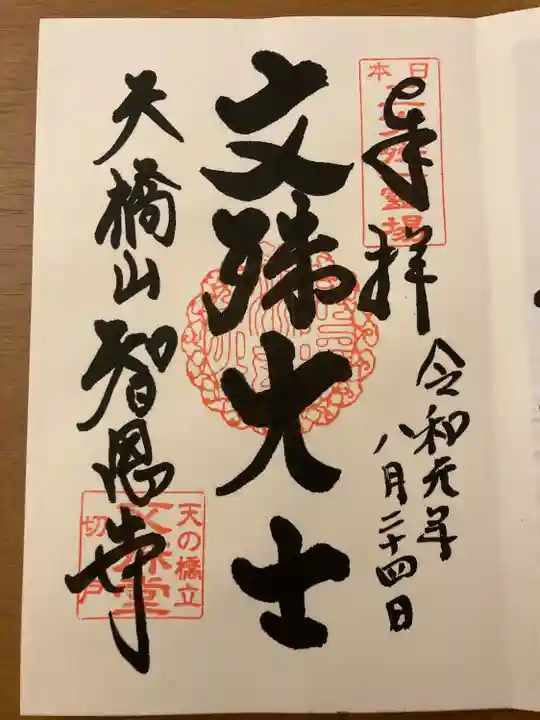 奉拝
日本三文殊霊場
令和元年
八月二十四日
文殊大士
天橋山智恩寺
天の橋立
文殊堂
切戸